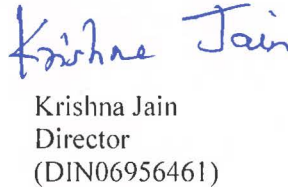 Krishna Jain
Krishna Jain
Director
(DIN06956461)